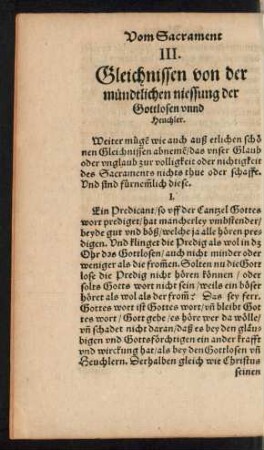 Vom Sacrament
III.
Gleichnissen von der
mündtlichen niessung der
Gottlosen vnnd
Heuchler.
Weiter mügē wie auch auß etlichen schö
nen Gleichnissen abnemē/das vnser Glaub
oder vnglaub zur volligkeit oder nichtigkeit
des Sacraments nichts thue oder schaffe.
Vnd sind fürnemlich diese.
I.
Ein Predicant/so vff der Cantzel Gottes
wort prediget/hat mancherley vmbstender/
beyde gut vnd böß/welche ja alle hören pre-
digen. Vnd klinget die Predig als wol in dz
Ohr das Gottlosen/auch nicht minder oder
weniger als die from̄en. Solten nu die Gott
lose die Predig nicht hören können / oder
solts Gotts wort nicht sein/weils ein böser
höret als wol als der from̄? Das sey ferr.
Gottes wort ist Gottes wort/vn̄ bleibt Got
tes wort/Gott gebe/es höre wer da wölle/
vn̄ schadet nicht daran/daß es bey den gläu-
bigen vnd Gottsförchtigen ein ander krafft
vnd wirckung hat/als bey den Gottlosen vn̄
Heuchlern. Derhalben gleich wie Christus
seinen